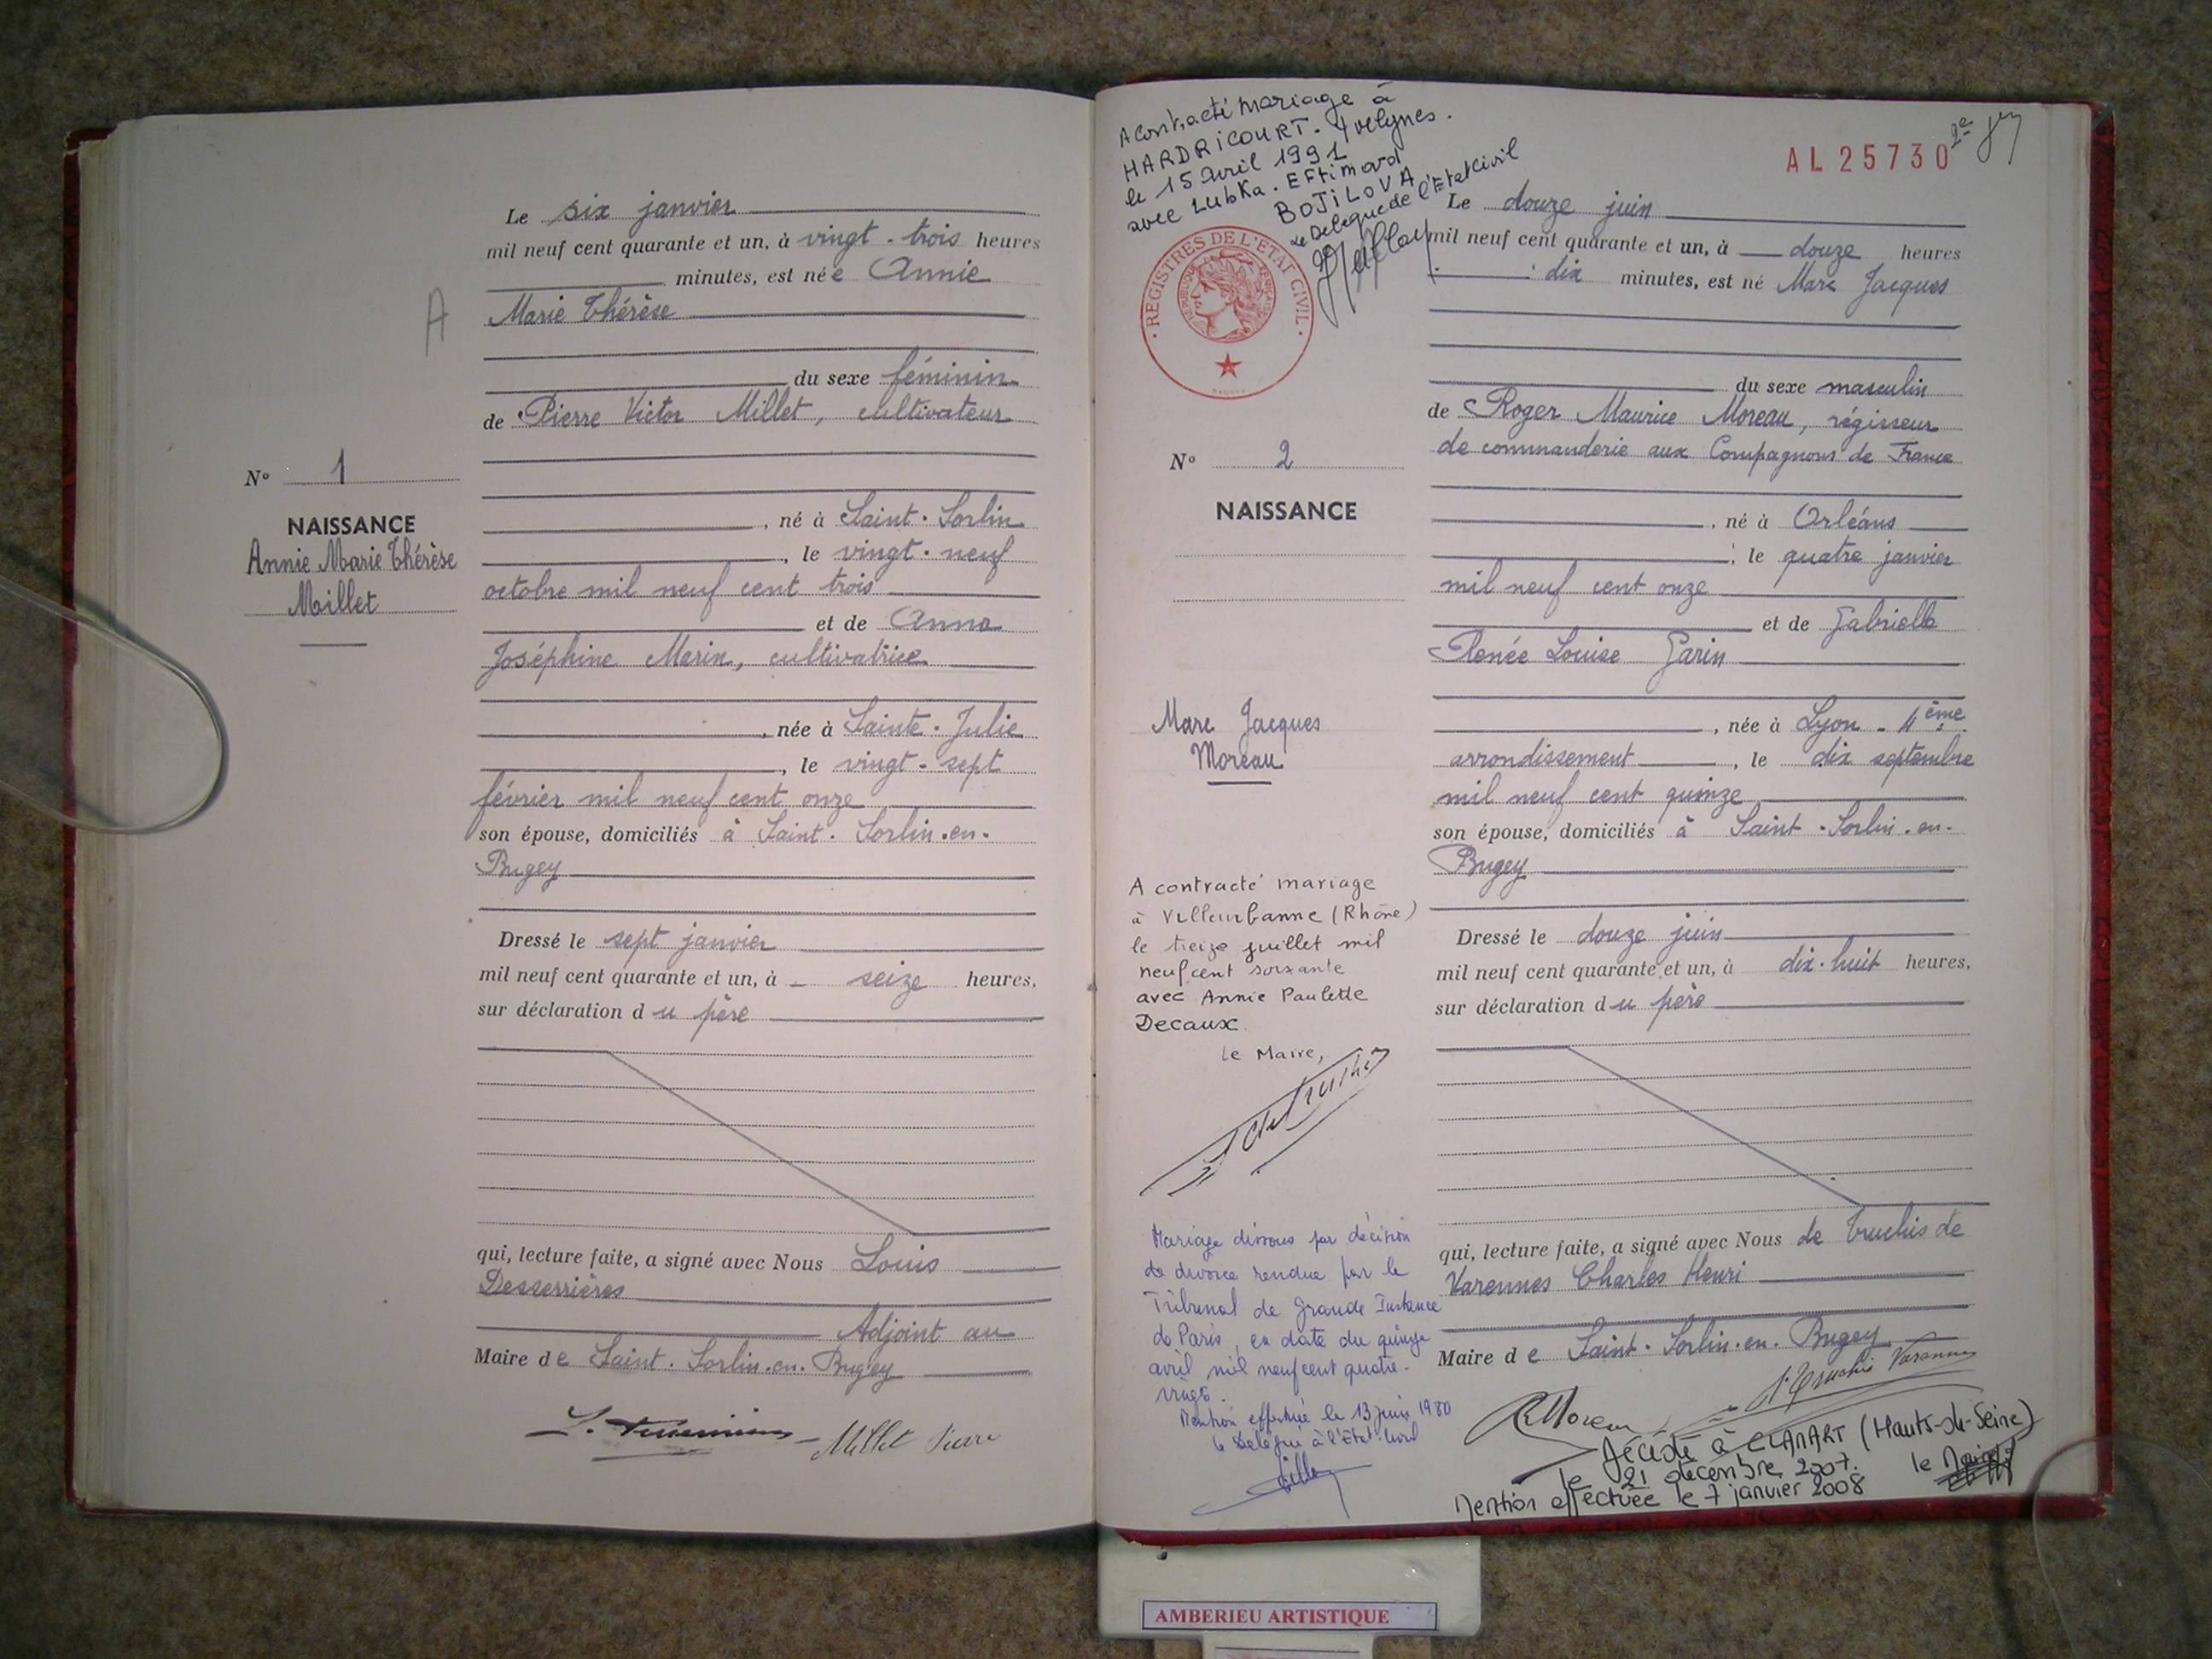 Le six janvier
mil neuf cent quarante et un, à vingt-trois heures
minutes, est née Annie
Marie Thérèse
A
du sexe féminin
de Pierre Victor Millet, cultivateur
, né à Saint-Sorlin
, le vingt-neuf
octobre mil neuf cent trois
et de Anna
Joséphine Marin, cultivatrice
, née à Sainte-Julie
, le vingt-sept
février mil neuf cent onze
son épouse, domiciliés à Saint-Sorlin-en-
Bugey
Dressé le sept janvier
mil neuf cent quarante et un, à seize heures,
sur déclaration du père
qui, lecture faite, a signé avec Nous Louis
Desserrières
Adjoint au
Maire de Saint-Sorlin-en-Bugey
Millet Pierre
N° 1
NAISSANCE
Annie Marie Thérèse
Millet
A contracté mariage à
HARDRICOURT. Yvelynes.
le 15 avril 1991
avec Lubka. Eftimova
BOJILOVA
Le Délégué de l'Etat Civil
REGISTRES DE L'ÉTAT CIVIL
N° 2
NAISSANCE
Marc Jacques
Moreau
A contracté mariage
à Villeurbanne (Rhône)
le treize juillet mil
neuf cent soixante
avec Annie Paulette
Decaux
Le Maire,
Mariage dissous par décision
de divorce rendue par le
Tribunal de Grande Instance
de Paris, en date du quinze
avril mil neuf cent quatre-
vingt.
Mention effectuée le 13 juin 1980
le Délégué à l'Etat Civil
AL 25730
2e
Le douze juin
mil neuf cent quarante et un, à douze heures
dix minutes, est né Marc Jacques
du sexe masculin
de Roger Maurice Moreau, régisseur
de commanderie aux Compagnons de France
, né à Orléans
, le quatre janvier
mil neuf cent onze
et de Gabrielle
Renée Louise Garin
, née à Lyon - 4ème
arrondissement, le dix septembre
mil neuf cent quinze
son épouse, domiciliés à Saint-Sorlin-en-
Bugey
Dressé le douze juin
mil neuf cent quarante et un, à dix-huit heures,
sur déclaration du père
qui, lecture faite, a signé avec Nous de Truchis de
Varennes Charles Henri
Maire de Saint-Sorlin-en-Bugey
RMoreau
Décédé à CLAMART (Hauts-de-Seine)
le 21 décembre 2007.
Mention effectuée le 7 janvier 2008
AMBERIEU ARTISTIQUE